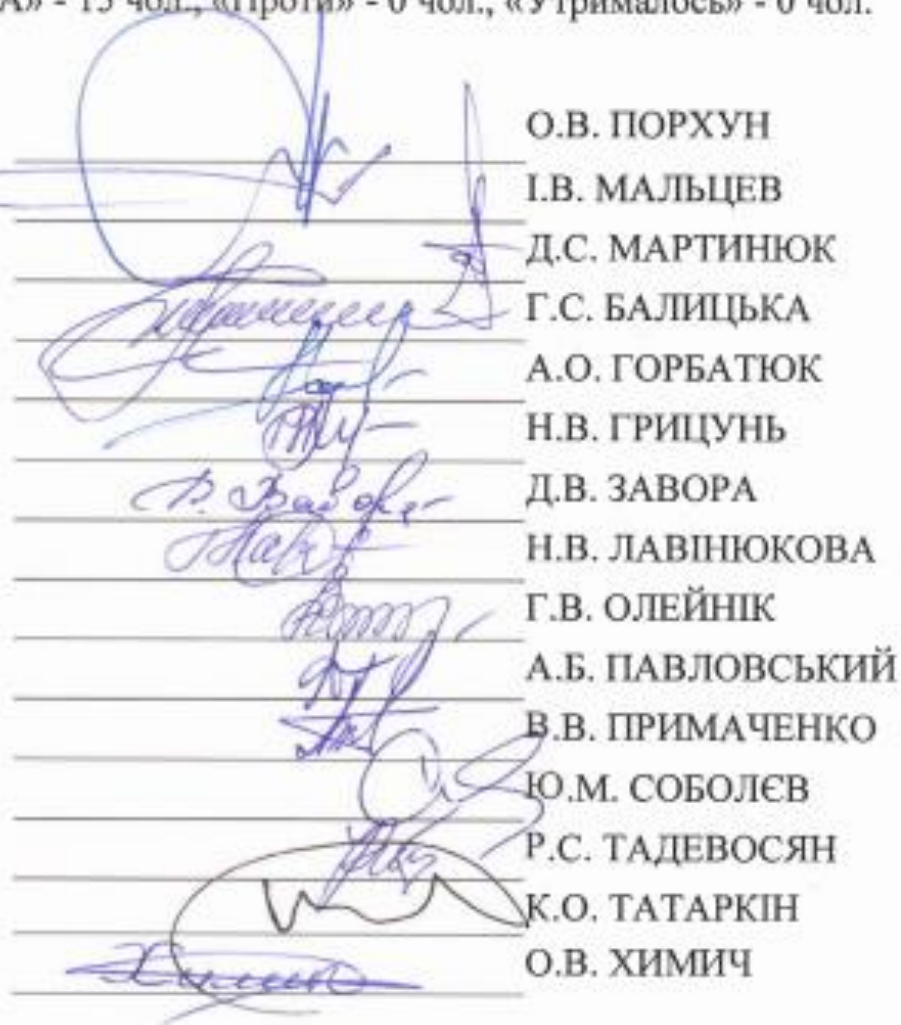 А» - 15 чол., «Проти» - 0 чол., «Утрималось» - 0 чол.
О.В. ПОРХУН
І.В. МАЛЬЦЕВ
Д.С. МАРТИНЮК
Г.С. БАЛИЦЬКА
А.О. ГОРБАТЮК
Н.В. ГРИЦУНЬ
Д.В. ЗАВОРА
Н.В. ЛАВІНЮКОВА
Г.В. ОЛЕЙНІК
А.Б. ПАВЛОВСЬКИЙ
В.В. ПРИМАЧЕНКО
Ю.М. СОБОЛЄВ
Р.С. ТАДЕВОСЯН
К.О. ТАТАРКІН
О.В. ХИМИЧ